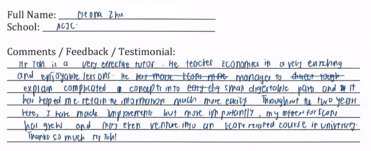 Full Name: Deona Zhu
School: ACJC
Comments / Feedback / Testimonial:
Mr Toh is a very effective tutor. He teaches Economics in a very enriching
and enjoyable lessons. He manages to
explain complicated concepts into small digestable parts and it
has helped me retain the information much more easily. Throughout the two years
here, I have made improvements but more importantly, my interest for Econs
has grown and may even venture into an Econ related course in university.
Thanks so much Mr Toh!